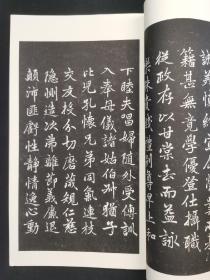 誠美慎終宜令榮業所基
籍甚無竟學優登仕攝職
從政存以甘棠去而益詠
樂殊貴賤禮別尊卑上和
下睦夫唱婦隨外受傅訓
入奉母儀諸姑伯叔猶子
比兒孔懷兄弟同氣連枝
交友投分切磨箴規仁慈
隱惻造次弗離節義廉退
顛沛匪虧性靜情逸心動